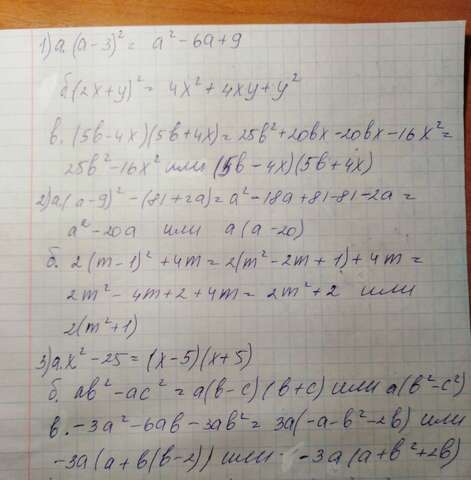 1) а. (a-3)² = a² - 6a + 9
б (2x+y)² = 4x² + 4xy + y²
в. (5b-4x)(5b+4x) = 25b² + 20bx - 20bx - 16x² =
25b² - 16x² или (5b - 4x)(5b + 4x)
2) а. (a-9)² - (81+2a) = a² - 18a + 81 - 81 - 2a =
a² - 20a или a(a-20)
б. 2(m-1)² + 4m = 2(m² - 2m + 1) + 4m =
2m² - 4m + 2 + 4m = 2m² + 2 или
2(m²+1)
3) а. x² - 25 = (x-5)(x+5)
б. ab² - ac² = a(b-c)(b+c) или a(b²-c²)
в. -3a² - 6ab - 3ab² = 3a(-a-b²-2b) или
-3a(a+b(b-2)) или -3a(a+b²+2b)